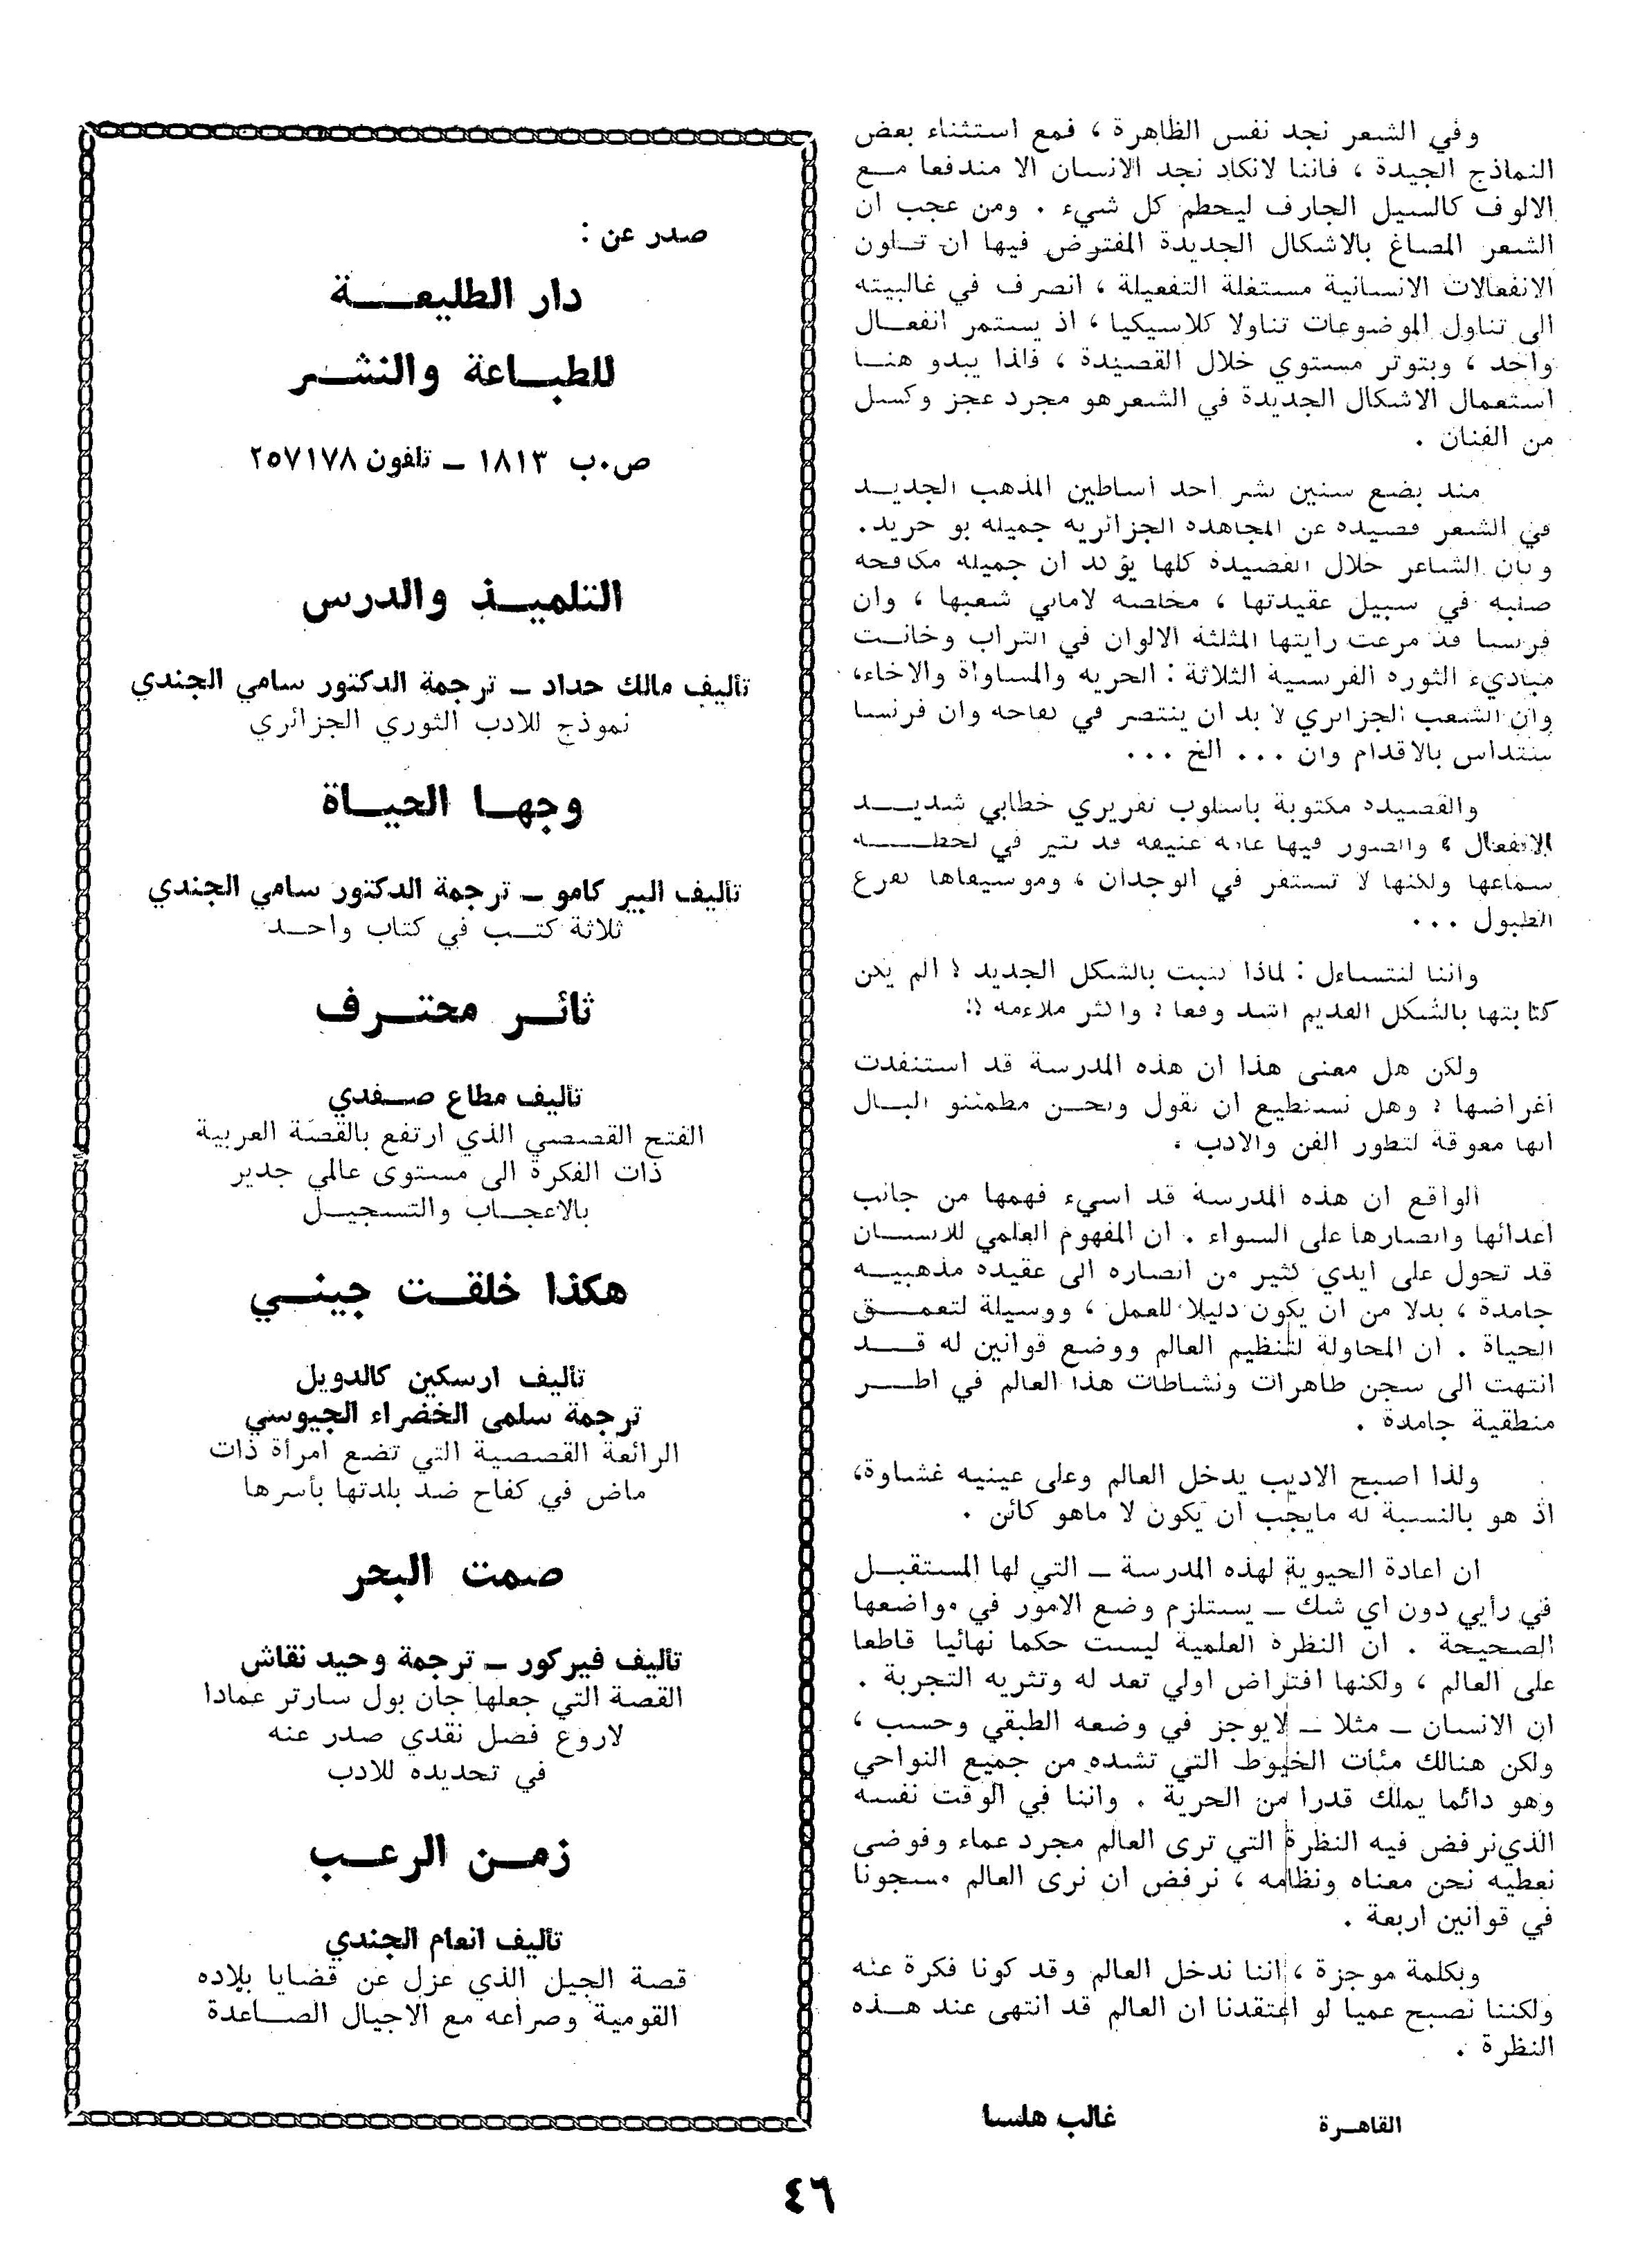 وفي الشعر نجد نفس الظاهرة ، فمع استثناء بعض
النماذج الجيدة ، فاننا لانكاد نجد الانسان الا مندفعا مــع
الالوف كالسيل الجارف ليحطم كل شيء . ومن عجب ان
الشعر المصاغ بالاشكال الجديدة المفترض فيها ان تــلون
الانفعالات الانسانية مستغلة التفعيلة ، انصرف في غالبيته
الى تناول الموضوعات تناولا كلاسيكيا ، اذ يستمر انفعــال
واحد ، وبتوتر مستوي خلال القصيدة ، فلذا يبدو هنــا
استعمال الاشكال الجديدة في الشعر هو مجرد عجز وكسل
من الفنان .
منذ بضع سنين نشر احد اساطين المذهب الجديــد
في الشعر قصيدة عن المجاهدة الجزائرية جميلة بو حريد.
وكان الشاعر خلال القصيدة كلها يؤكد ان جميلة مكافحة
صلبة في سبيل عقيدتها ، مخلصة لاماني شعبها ، وان
فرنسا قد مرغت رايتها المثلثة الالوان في التراب وخانــت
مباديء الثورة الفرنسية الثلاثة : الحرية والمساواة والاخاء،
وان الشعب الجزائري لا بد ان ينتصر في كفاحه وان فرنسا
ستداس بالاقدام وان ... الخ ...
والقصيدة مكتوبة باسلوب تقريري خطابي شديــد
الانفعال ، والصور فيها عادة عنيفة قد تثير في لحظــة
سماعها ولكنها لا تستقر في الوجدان ، وموسيقاها تقرع
الطبول ...
واننا لنتساءل : لماذا كتبت بالشكل الجديد ؟ الم يكن
كتابتها بالشكل القديم اشد وقعا ؟ واكثر ملاءمة ؟!
ولكن هل معنى هذا ان هذه المدرسة قد استنفدت
اغراضها ؟ وهل نستطيع ان نقول ونحــن مطمئنو البــال
انها معوقة لتطور الفن والادب .
الواقع ان هذه المدرسة قد اسيء فهمها من جانب
اعدائها وانصارها على السواء . ان المفهوم العلمي للانســان
قد تحول على ايدي كثير من انصاره الى عقيدة مذهبيــة
جامدة ، بدلا من ان يكون دليلا للعمل ، ووسيلة لتعمــق
الحياة . ان المحاولة لتنظيم العالم ووضع قوانين له قــد
انتهت الى سجن ظاهرات ونشاطات هذا العالم في اطــر
منطقية جامدة .
ولذا اصبح الاديب يدخل العالم وعلى عينيه غشاوة،
اذ هو بالنسبة له مايجب ان يكون لا ماهو كائن .
ان اعادة الحيوية لهذه المدرسة ــ التي لها المستقبــل
في رأيي دون اي شك ــ يستلزم وضع الامور في مواضعها
الصحيحة . ان النظرة العلمية ليست حكما نهائيا قاطعا
على العالم ، ولكنها افتراض اولي تعد له وتثريه التجربة .
ان الانسان ــ مثلا ــ لايوجز في وضعه الطبقي وحسب ،
ولكن هنالك مئات الخيوط التي تشده من جميع النواحي
وهو دائما يملك قدرا من الحرية . واننا في الوقت نفسه
الذي نرفض فيه النظرة التي ترى العالم مجرد عماء وفوضى
نعطيه نحن معناه ونظامه ، نرفض ان نرى العالم مسجونا
في قوانين اربعة .
وبكلمة موجزة ، اننا ندخل العالم وقد كونا فكرة عنه
ولكننا نصبح عميا لو اعتقدنا ان العالم قد انتهى عند هــذه
النظرة .
القاهــرة
غالب هلسا
صدر عن :
دار الطليعــة
للطبــاعة والنشــر
ص.ب ١٨١٣ ــ تلفون ٢٥٧١٧٨
التلميــذ والدرس
تأليف مالك حداد ــ ترجمة الدكتور سامي الجندي
نموذج للادب الثوري الجزائري
وجهــا الحيــاة
تأليف البير كامو ــ ترجمة الدكتور سامي الجندي
ثلاثة كتــب في كتاب واحــد
ثائــر محتــرف
تأليف مطاع صــفدي
الفتح القصصي الذي ارتفع بالقصة العربية
ذات الفكرة الى مستوى عالمي جدير
بالاعجــاب والتسجيــل
هكذا خلقــت جينــي
تأليف ارسكين كالدويل
ترجمة سلمى الخضراء الجيوسي
الرائعة القصصية التي تضع امرأة ذات
ماض في كفاح ضد بلدتها بأسرها
صمت البحر
تأليف فيركور ــ ترجمة وحيد نقاش
القصة التي جعلها جان بول سارتر عمادا
لاروع فصل نقدي صدر عنه
في تحديده للادب
زمــن الرعــب
تأليف انعام الجندي
قصة الجيل الذي عزل عن قضايا بلاده
القومية وصراعه مع الاجيال الصــاعدة
٤٦